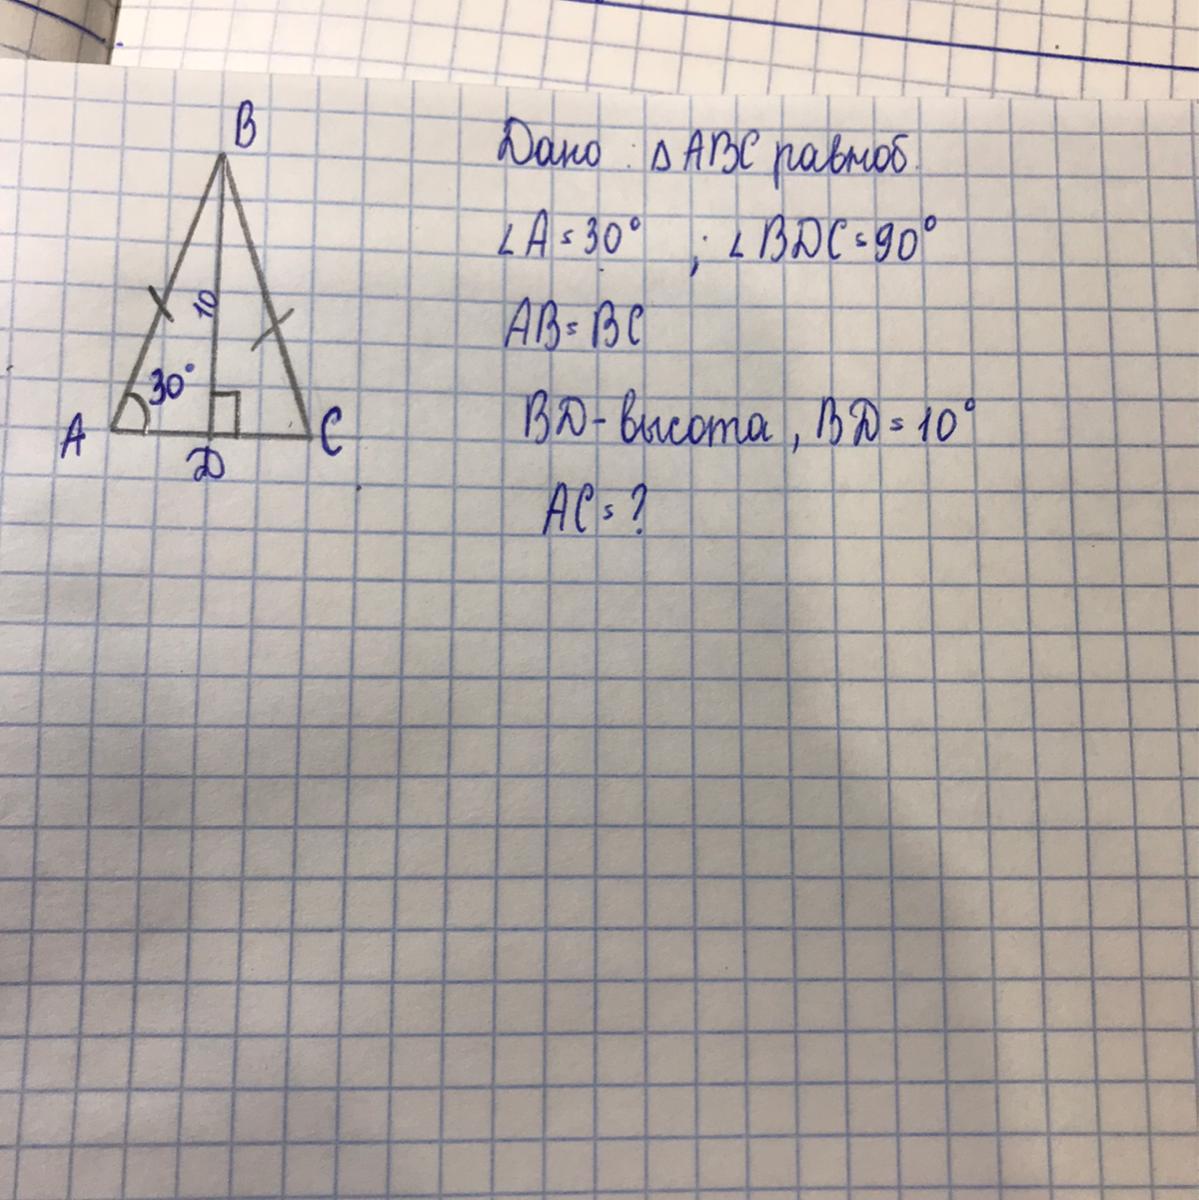 B
10
30°
A
D
C
Дано : △ABC равноб.
∠A = 30° ; ∠BDC = 90°
AB = BC
BD - высота, BD = 10°
AC = ?